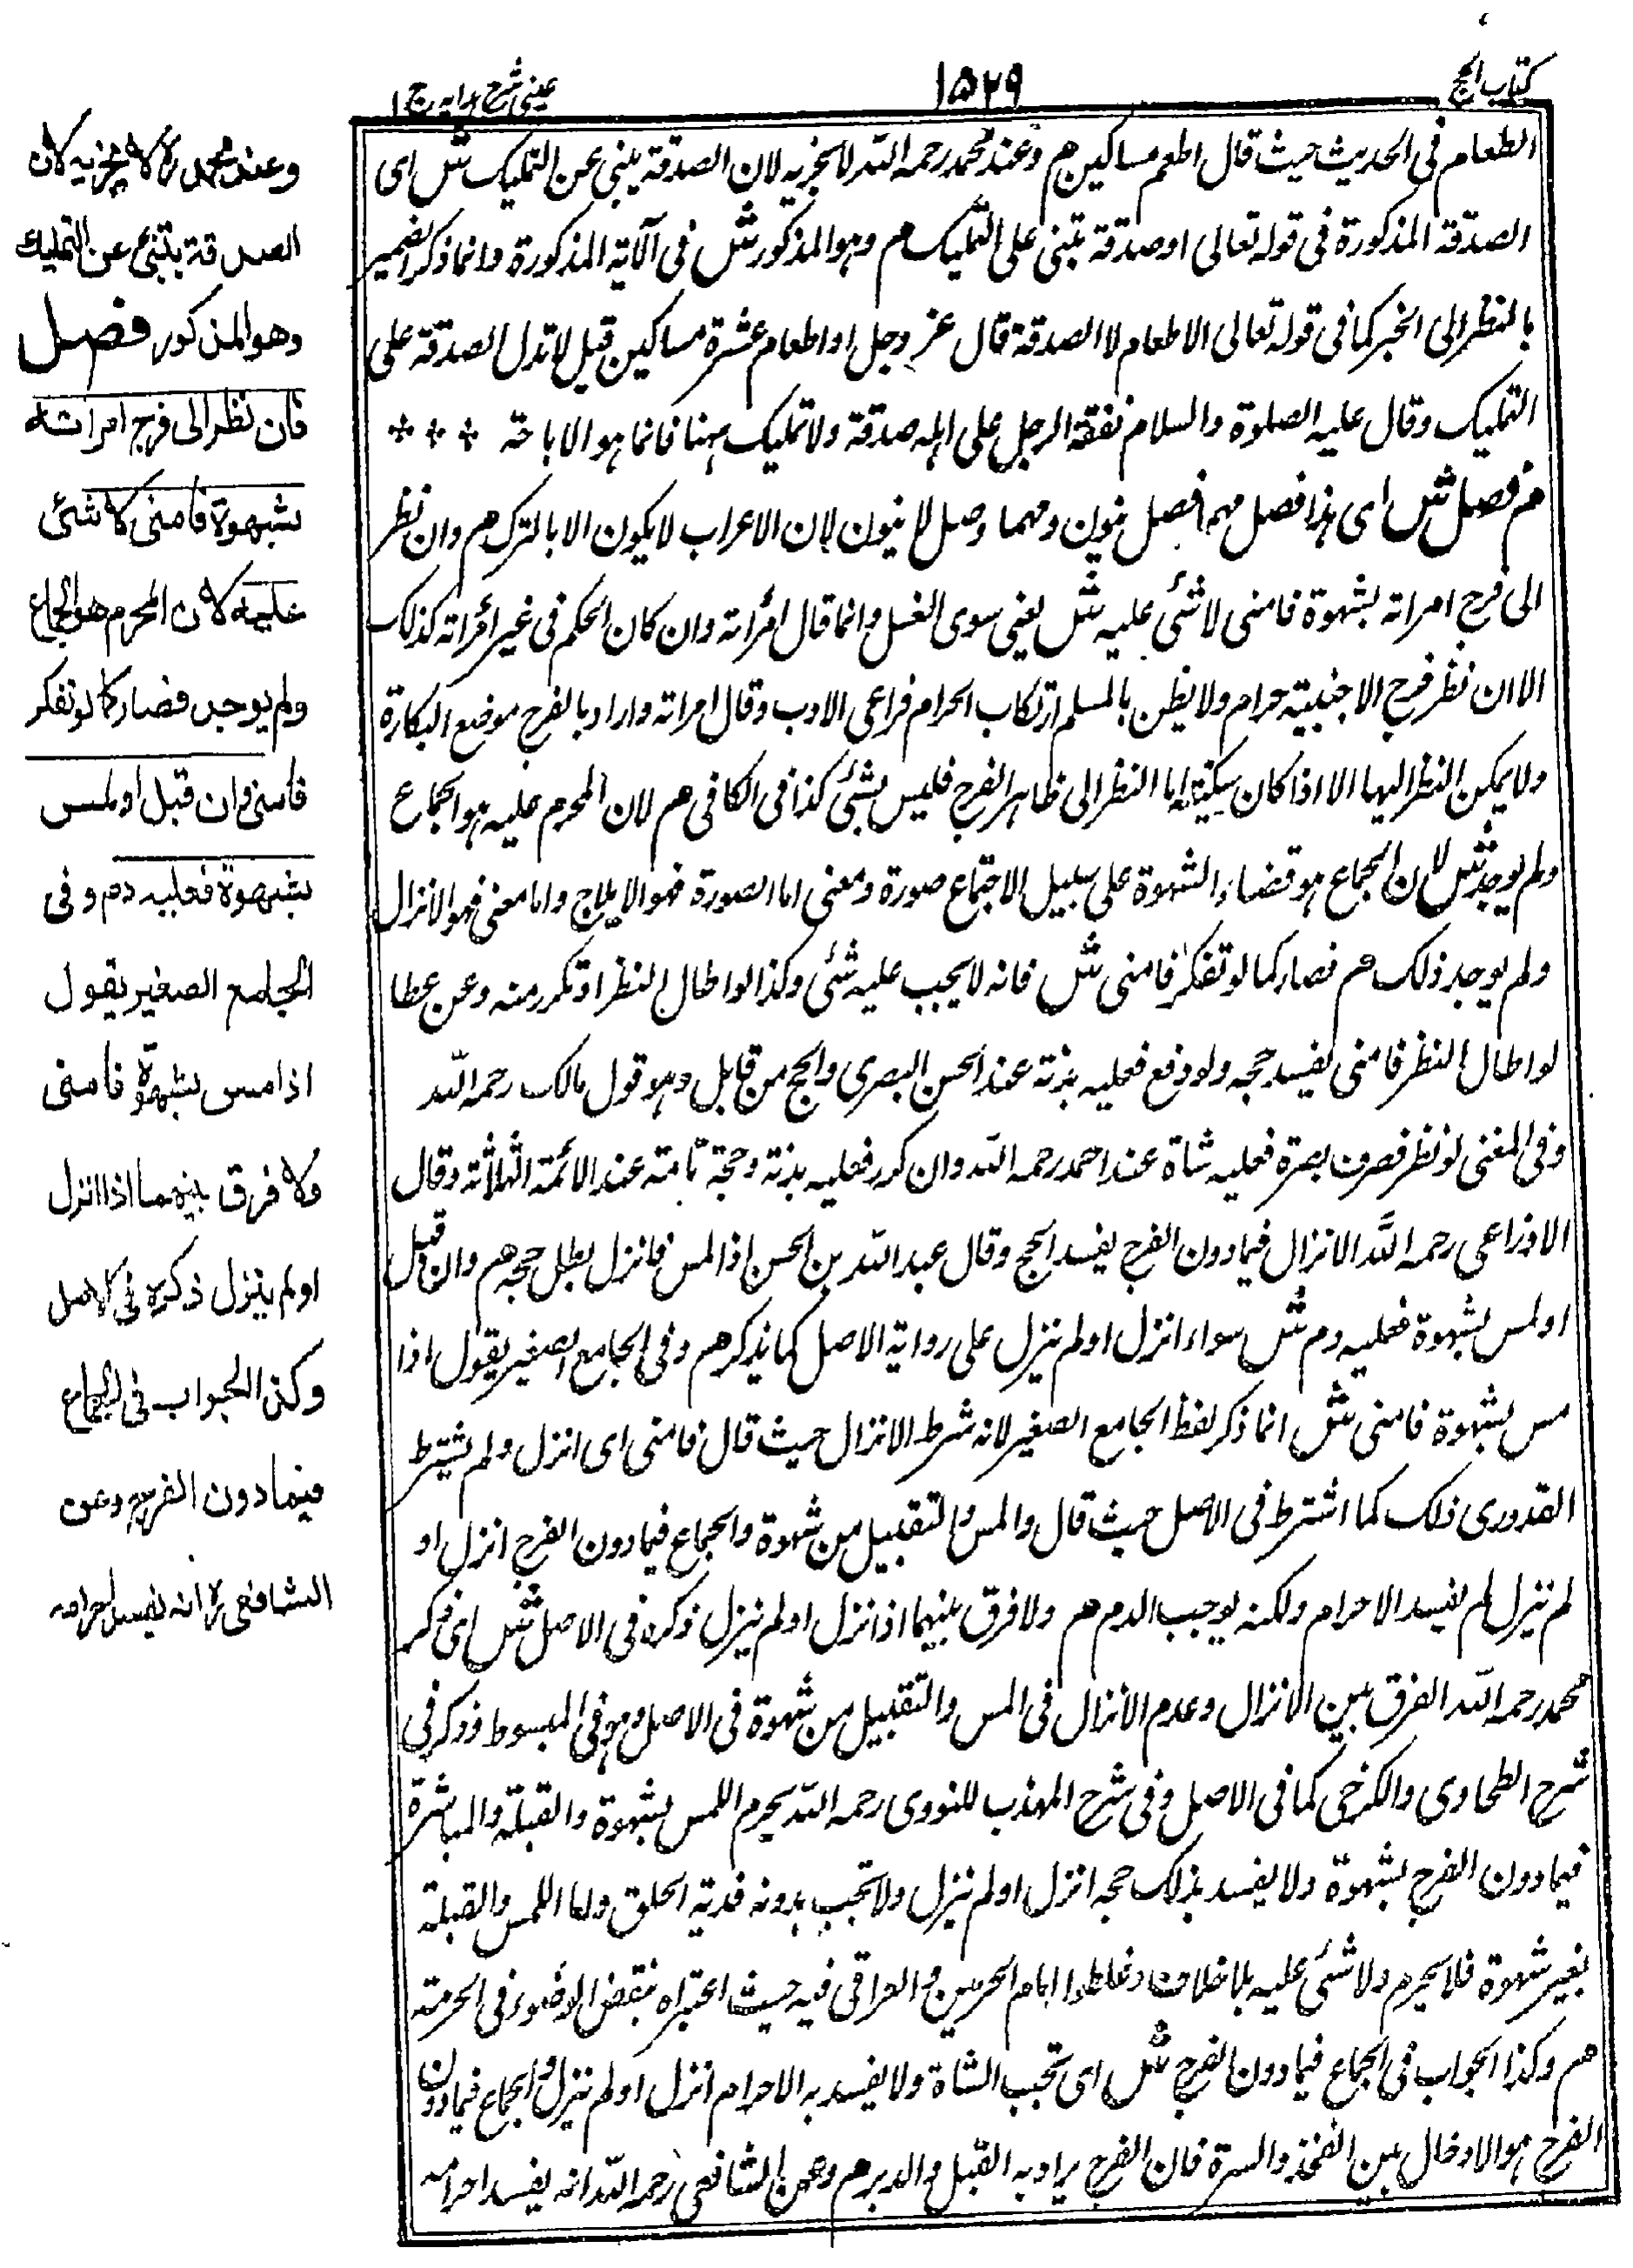 كتاب الحج
١٥٢٩
عینی شرح هدایه ج ١
الطعام فى الحديث حيث قال اطعم مساكين هم وعند محمد رحمه الله لا يجزيه لان الصدقة ينبئ عن التمليك ش اى
الصدقة المذكورة فى قوله تعالى او صدقة تبنى على التمليك هم وهو المذكور ش فى الآية المذكورة وانما ذكر الضمير
بالنظر الى الخبر كما فى قوله تعالى الاطعام لا الصدقة قال عز وجل او اطعام عشرة مساكين قيل لا تدل الصدقة على
التمليك وقال عليه الصلوة والسلام نفقة الرجل على اهله صدقة ولا تمليك ههنا فانما هو الاباحة ٭ ٭ ٭
هم فصل ش اى هذا فصل مهما فصل ينون ومهما وصل لا ينون لان الاعراب لا يكون الا بالترك هم وان نظر
الى فرج امراته بشهوة فامنى لا شئ عليه ش يعنى سوى الغسل وانما قال امرأته وان كان الحكم فى غير امرأته كذلك
الا ان نظر فرج الاجنبية حرام ولا يظن بالمسلم ارتكاب الحرام فراعى الادب وقال امراته واراد بالفرج موضع البكارة
ولا يمكن النظر اليها الا اذا كان متكئة اما النظر الى ظاهر الفرج فليس بشئ كذا فى الكافى هم لان المحرم عليه هو الجماع
ولم يوجد ش لان الجماع هو قضاء الشهوة على سبيل الاجتماع صورة ومعنى اما الصورة فهو الايلاج واما معنى فهو الانزال
ولم يوجد ذلك هم فصار كما لو تفكر فامنى ش فانه لا يجب عليه شئ وكذا لو اطال النظر او تكرر منه وعن عطا
لو اطال النظر فامنى يفسد حجه ولو دفع فعليه بدنة عند الحسن البصرى والحج من قابل وهو قول مالك رحمه الله
وفى المغنى لو نظر فصرف بصره فعليه شاة عند احمد رحمه الله وان كرر فعليه بدنة وحجة تامة عند الائمة الثلاثة وقال
الاوزاعى رحمه الله الانزال فيما دون الفرج يفسد الحج وقال عبد الله بن الحسن اذا لمس فانزل بطل حجه هم وان قبل
او لمس بشهوة فعليه دم ش سواء انزل او لم ينزل على رواية الاصل كما يذكر هم وفى الجامع الصغير يقول اذا
مس بشهوة فامنى ش انما ذكر لفظ الجامع الصغير لانه شرط الانزال حيث قال فامنى اى انزل ولم يشترط
القدورى ذلك كما اشترط فى الاصل حيث قال والمس والتقبيل من شهوة والجماع فيما دون الفرج انزل او
لم ينزل لم يفسد الاحرام ولكنه يوجب الدم هم ولا فرق بينهما اذا انزل او لم ينزل ذكره فى الاصل ش اى ذكر
محمد رحمه الله الفرق بين الانزال وعدم الانزال فى المس والتقبيل من شهوة فى الاصل وهو فى المبسوط وذكر فى
شرح الطحاوى والكرخى كما فى الاصل وفى شرح المهذب للنووى رحمه الله يحرم اللمس بشهوة والقبلة والمباشرة
فيما دون الفرج بشهوة ولا يفسد بذلك حجه انزل او لم ينزل ولا تجب بدونه فدية الحلق واما اللمس والقبلة
بغير شهوة فلا يحرم ولا شئ عليه بلا خلاف وغلطوا امام الحرمين والعراقى فيه حيث اعتبراه بنقض الوضوء فى الحرمة
هم وكذا الجواب فى الجماع فيما دون الفرج ش اى تجب الشاة ولا يفسد به الاحرام انزل او لم ينزل والجماع فيما دون
الفرج هو الادخال بين الفخذ والسرة فان الفرج يراد به القبل والدبر هم وعن الشافعى رحمه الله انه يفسد احرامه
وعند محمد رح لا يجزيه لان
الصدقة ينبئ عن التمليك
وهو المذكور فصل
فان نظر الى فرج امراته
بشهوة فامنى لا شئ
عليه لان المحرم هو الجماع
ولم يوجد فصار كما لو تفكر
فامنى وان قبل او لمس
بشهوة فعليه دم وفى
الجامع الصغير يقول
اذا مس بشهوة فامنى
ولا فرق بينهما اذا انزل
او لم ينزل ذكره فى الاصل
وكذا الجواب فى الجماع
فيما دون الفرج وعن
الشافعى رح انه يفسد احرامه